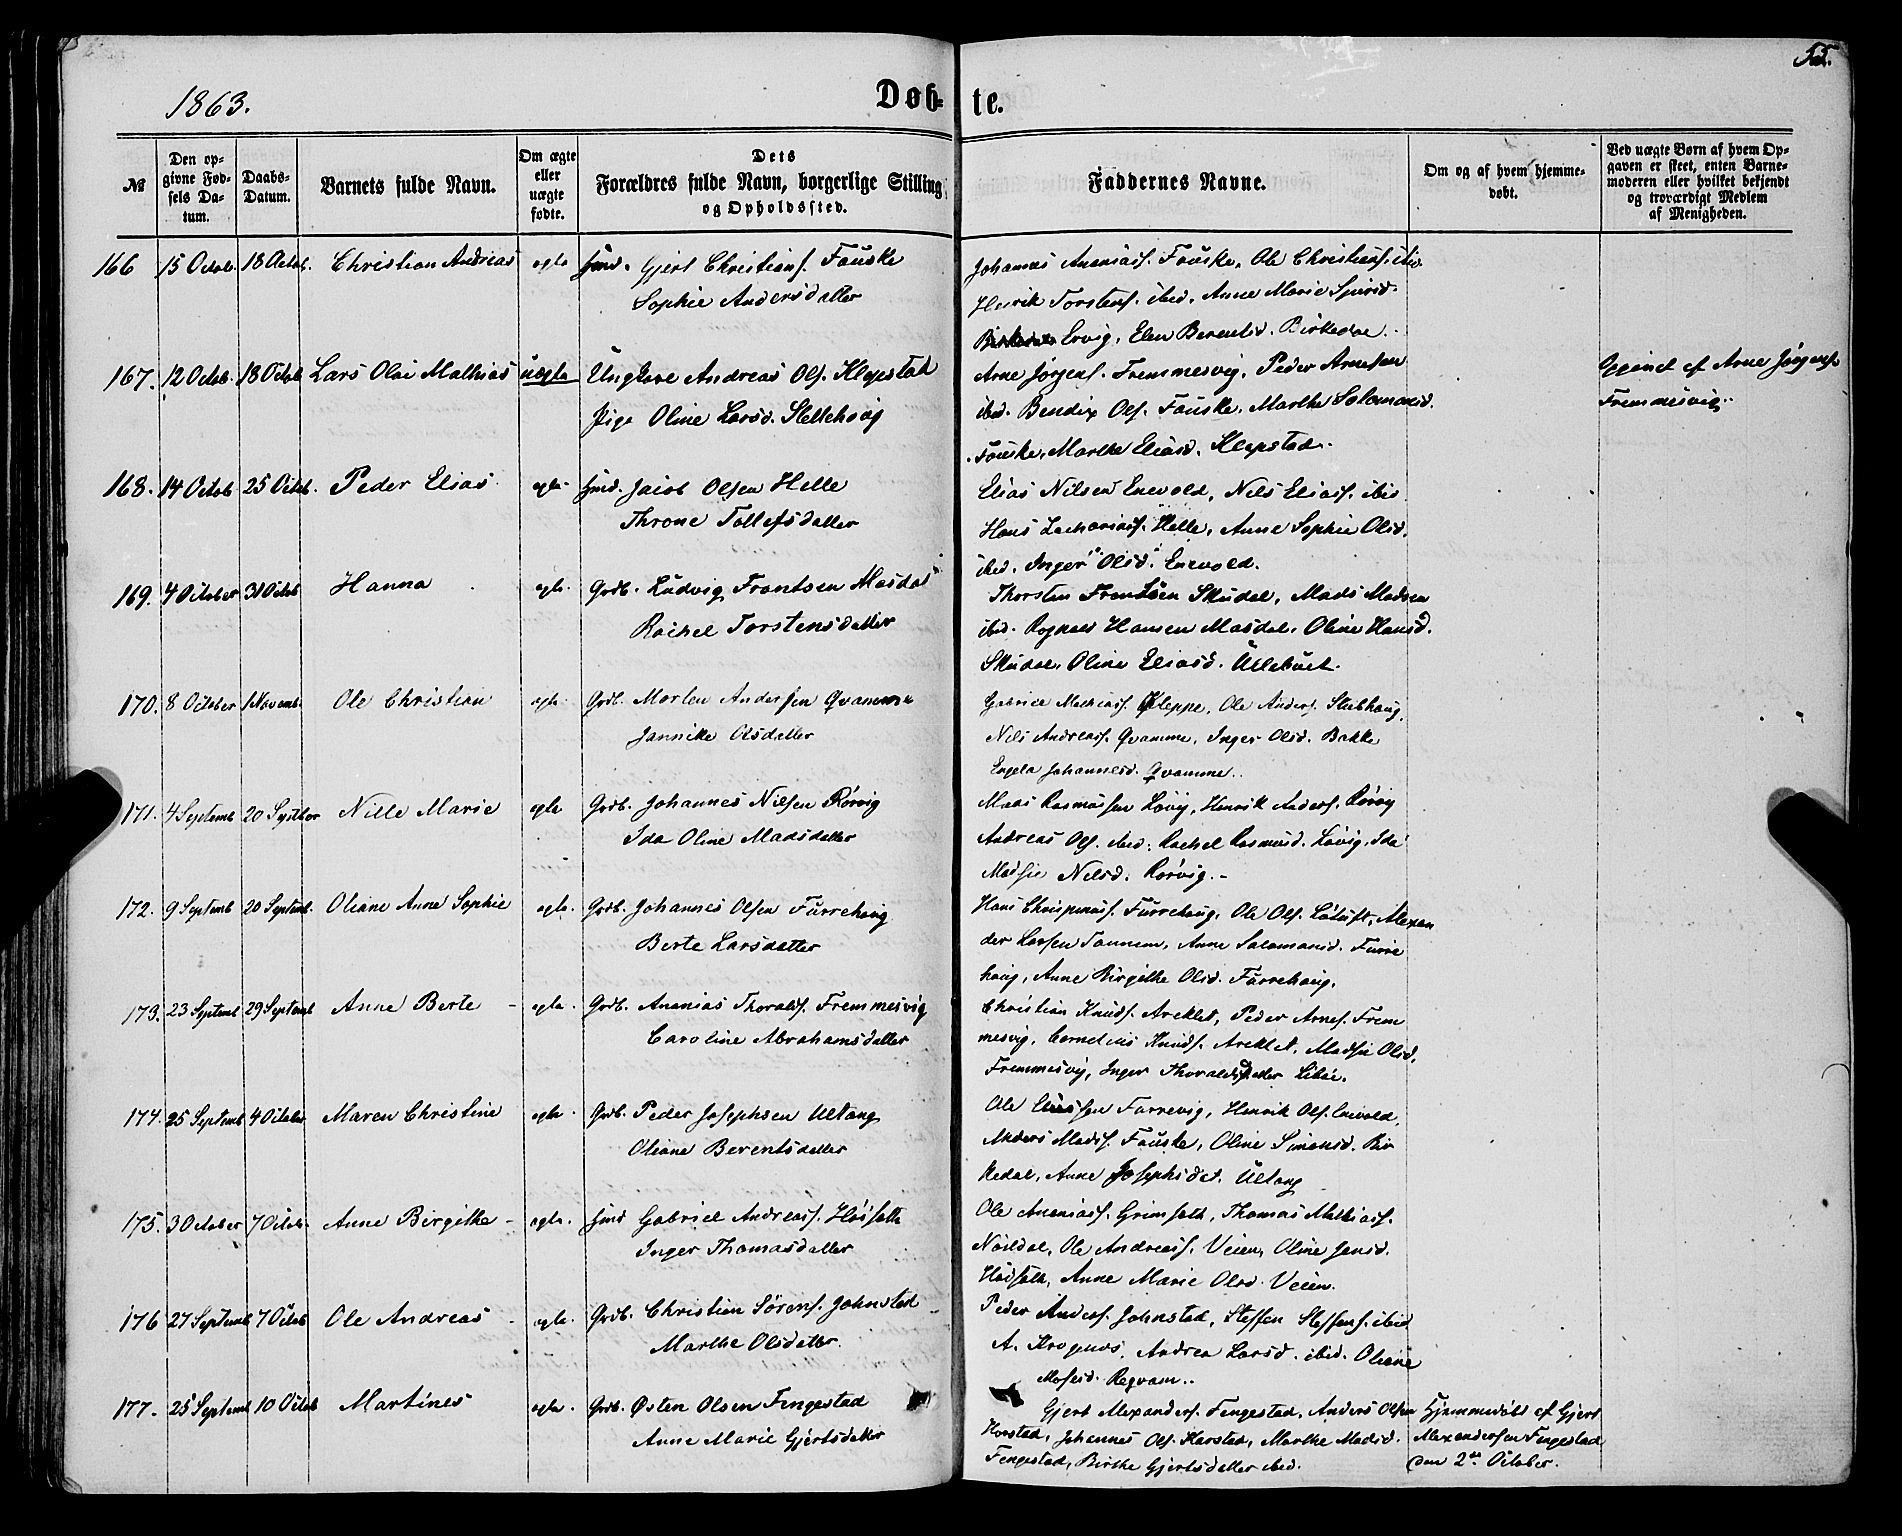 55.
1863.
Døb- te.
№
Den op-
givne Fød-
sels Da-
tum.
Daabs-
Datum.
Barnets fulde Navn.
Om ægte
eller
uægte
fødte.
Dets
Forældres fulde Navn, borgerlige Stilling
og Opholdssted.
Faddernes Navne.
Om og af hvem hjemme-
døbt.
Ved uægte Børn af hvem Op-
gaven er skeet, enten Barne-
moderen eller hvilket bekjendt
og troværdigt Medlem
af Menigheden.
166 15 Octob. 18 Octob. Christian Andreas egte Gjert Christians. Fauske
Sophie Andersdatter
Johannes Ananiass. Fauske, Ole Christians. ibid
Henrik Torstens. ibid. Anne Marie
Ervig, Elen Berentsd. Birkedal.
167. 12 Octob. 18 Octob. Lars Olai Mathias uegte Ungkare Andreas Ols. Klepstad
Pige Oline Larsd. Slettehoug
Arne Jørgens. Fremmesvig, Peder Arnesen
ibid. Bendix Ols. Fauske, Marthe Salomonsd.
Fauske, Marthe Eliasd. Klepstad.
Opgivet af Arne Jørgens.
Fremmesvig.
168. 14 Octob. 25 Octob. Peder Elias egte Jacob Olsen Helle
Throne Tollefsdatter
Elias Nilsen Enevold, Nils Eliass. ibid
Hans Zachariass. Helle, Anne Sophie Olsd.
ibid. Inger Olsd. Enevold.
169. 4 October 31 Octob Hanna egte. Grdb. Ludvig Frantsen Masdal
Rachel Torstensdatter
Thorsten Frantsen Skudal, Mads Madsen
ibid. Hansen Masdal, Oline Hansd.
Skudal, Oline Eliasd. Ullebuet.
170. 8 October 1 Novemb. Ole Christian egte. Grdb. Morten Andersen Qvamme
Jannike Olsdatter
Gabriel Kleppe, Ole Anders. Stubhaug,
Nils Andreass. Qvamme, Inger Olsd. Bakke
Engela Johannesd. Qvamme.
171. 4 Septemb 20 Septbor Nille Marie egte Grdb. Johannes Nilsen Rørvig
Ida Oline Madsdatter
Mads Rasmussen Løvig, Henrik Anders. Rørvig
Andreas Ols. ibid. Rachel Rasmusd. Løvig, Ida
Madsie Nilsd. Rørvig.
172. 9 Septemb 20 Septemb. Oliane Anne Sophie egte. Grdb. Johannes Olsen Furrehoug
Berte Larsdatter
Hans Furrehoug, Ole Ols. Alexan
der Larsen Tannem, Anne Salomonsd. Furre
houg, Anne Birgithe Olsd. Furrehoug.
173. 23 Septemb 29 Septemb Anne Berte egte. Grdb. Ananias Thoralds. Fremmesvig
Caroline Abrahamsdatter
Christian Knuds. Areklet, Peder Arnes. Frem
mesvig, Cornelius Knuds. Areklet, Madsie Olsd.
Fremmesvig, Inger
174. 25 Septemb 4 October Maren Christine egte. Grdb. Peder Josephsen Ultang
Oliane Berentsdatter
Ole Furrevig, Henrik Ols. Enevold,
Anders Mads. Fauske, Oline Simensd. Bir
kedal, Anne Josephsdat. Ultang
175. 3 October 7 Octob. Anne Birgithe egte. Gabriel Andreass. Høisæth
Inger Thomasdatter
Ole Ananiass. Grimseth, Thomas Mathiass.
Nøisdal, Ole Andreass. Veien, Oline Jensd.
Høisæth, Anne Marie Olsd. Veien.
176 27 Septemb 7 Octob Ole Andreas egte. Grdb. Christian Sørens. Johnstad
Marthe Olsdatter.
Peder Anders. Johnstad, Steffen Steffens. ibid
A. Krognes, Andrea Larsd. ibid. Oliane
Mosesd. Reqvam.
177. 25 Septemb 10 Octob Martines egte. Grdb. Østen Olsen Fengestad
Anne Marie Gjertsdatter
Gjert Alexanders. Fengestad, Anders Olsen
Horstad, Johannes Ols. Harstad, Marthe Madsd.
Fengestad, Birthe Gjertsdatter ibid.
Hjemmedøbt af Gjert
Alexandersen Fengestad
den 2den October.